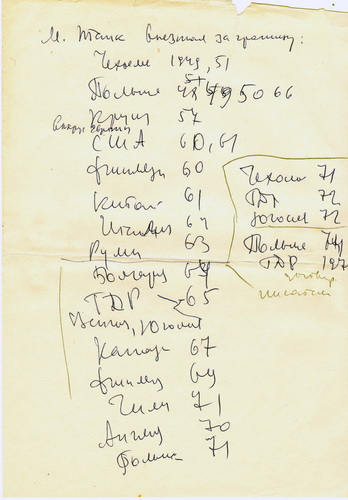 М. Танк выезжал за границу:
Чехосл 1949, 51
Польша 48 49 50 66
54
Круиз 57
вокруг Европы
США 60, 61
Финлянд 60
Китай 61
Италия 64
Румы 63
Болгария 64
ГДР 65
Югосл
Канада 67
Финлянд 69
Чили 71
Англия 70
Польша 71
Чехосл 71
ГДР 72
Югосл 72
Польша 74
ГДР 197